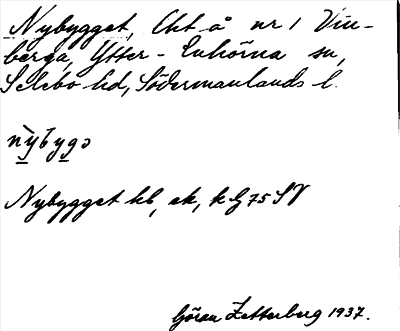 Nybygget, Cht å nr 1 Vin-
berga, Ytter-Enhörna sn,
Selebo hd, Södermanlands l.
nỳbygə
Nybygget hb, ek, k G 75 SV
Göran Zetterberg 1937.